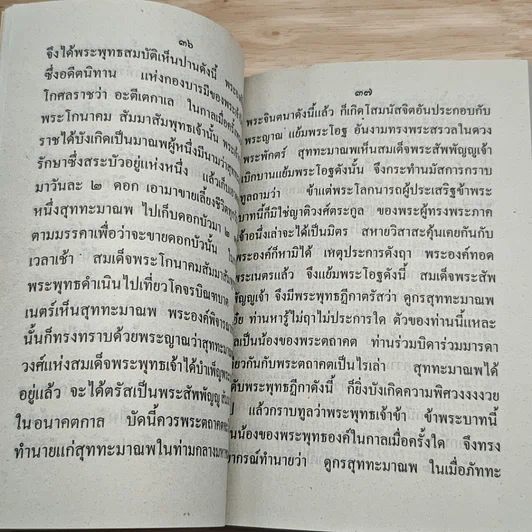 ๓๖
จึงได้พระพุทธสมบัติเห็นปานดังนี้
ซึ่งอดีตนิทาน แห่งกองบารมีของพระองค์
โกศลราชว่า อะตีเตกาเล ในกาลเมื่อครั้ง
พระโกนาคม สัมมาสัมพุทธเจ้านั้น
ราชได้บังเกิดเป็นมาณพผู้หนึ่งมีนามว่าสุททะ
รักษาซึ่งสระบัวอยู่แห่งหนึ่ง แล้วเก็บ
มาวันละ ๒ ดอก เอามาขายเลี้ยงชีวิต
หนึ่งสุททะมาณพ ไปเก็บดอกบัวมา ๒
ตามมรรคาเพื่อว่าจะขายดอกบัวนั้น
เวลาเช้า สมเด็จพระโกนาคมสัมมาสัม
พระพุทธดำเนินไปเที่ยวโคจรบิณฑบาต
เนตรเห็นสุททะมาณพ พระองค์พิจารณา
นั้นก็ทรงทราบด้วยพระญาณว่าสุททะมาณพ
วงศ์แห่งสมเด็จพระพุทธเจ้าได้บำเพ็ญพระ
อยู่แล้ว จะได้ตรัสเป็นพระสัพพัญญู
ในอนาคตกาล บัดนี้ควรพระตถาคตจะ
ทำนายแก่สุททะมาณพในท่ามกลางมหา
๓๗
พระจินตนาดังนี้แล้ว ก็เกิดโสมนัสจิตอันประกอบกับ
พระญาณ แย้มพระโอฐ อันงามทรงพระสรวลในดวง
พระพักตร์ สุททะมาณพเห็นสมเด็จพระสัพพัญญูเจ้า
เบิกบานแย้มพระโอฐดังนั้น จึงกระทำนมัสการกราบ
ทูลถามว่า ข้าแต่พระโลกนารถผู้ประเสริฐข้าพระ
บาทนี้ก็มิใช่ญาติวงศ์ตระกูล ของพระผู้ทรงพระภาค
เจ้าอนึ่งเล่าจะได้เป็นมิตร สหายวิสาสะคุ้นเคยกันกับ
พระองค์ก็หามิได้ เหตุประการดังฤา พระองค์ทอด
พระเนตรแล้ว จึงแย้มพระโอฐดังนี้ สมเด็จพระสัพ
พัญญูเจ้า จึงมีพระพุทธฎีกาตรัสว่า ดูกรสุททะมาณพ
เอ๋ย ท่านหารู้ไม่ฤาไม่ประการใด ตัวของท่านนี้แหละ
เป็นน้องของพระตถาคต ท่านร่วมบิดาร่วมมารดา
เดียวกันกับพระตถาคตเป็นไรเล่า สุททะมาณพได้
พระพุทธฎีกาดังนี้ ก็ยิ่งบังเกิดความพิศวงงงงวย
แล้วกราบทูลว่าพระพุทธเจ้าข้า ข้าพระบาทนี้
เป็นน้องของพระพุทธองค์ในกาลเมื่อครั้งใด จึงทรง
พยากรณ์ทำนายว่า ดูกรสุททะมาณพ ในเมื่อภัททะ